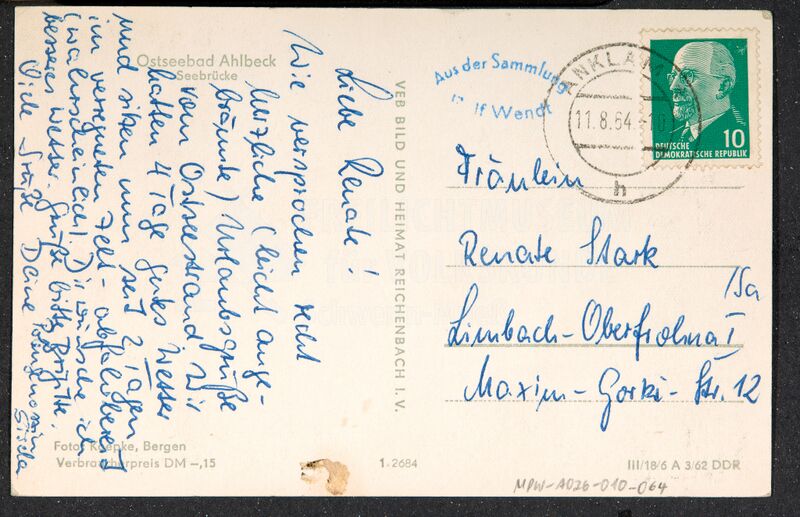 Ostseebad Ahlbeck
Seebrücke
Liebe Renate!
Wie versprochen recht
herzliche (leicht ange-
bräunte) Urlaubsgrüße
vom Ostseestrand. Wir
hatten 4 Tage gutes Wetter
und sitzen nun seit 2 Tagen
im verregneten Zelt - abfahrbereit
(wahrscheinlich). Dir wünsche ich
besseres Wetter. Grüße bitte Brigitte.
Viele Grüße Deine
Gisela
Foto: Knepke, Bergen
Verbraucherpreis DM –,15
1.2684
VEB BILD UND HEIMAT REICHENBACH I. V.
Aus der Sammlung
lf Wendt
ANKLAM
11.8.64.-10
h
10
DEUTSCHE
DEMOKRATISCHE REPUBLIK
Fräulein
Renate Stark
Limbach-Oberfrohna I /Sa
Maxim-Gorki-Str. 12
III/18/6 A 3/62 DDR
MPW-A026-010-064